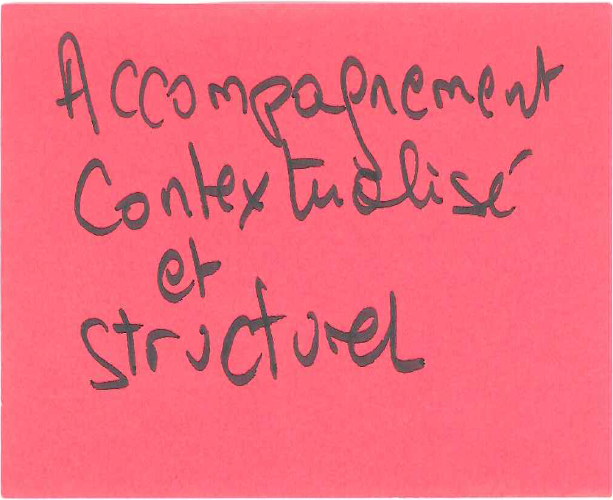 Accompagnement
Contextualisé
et
structurel